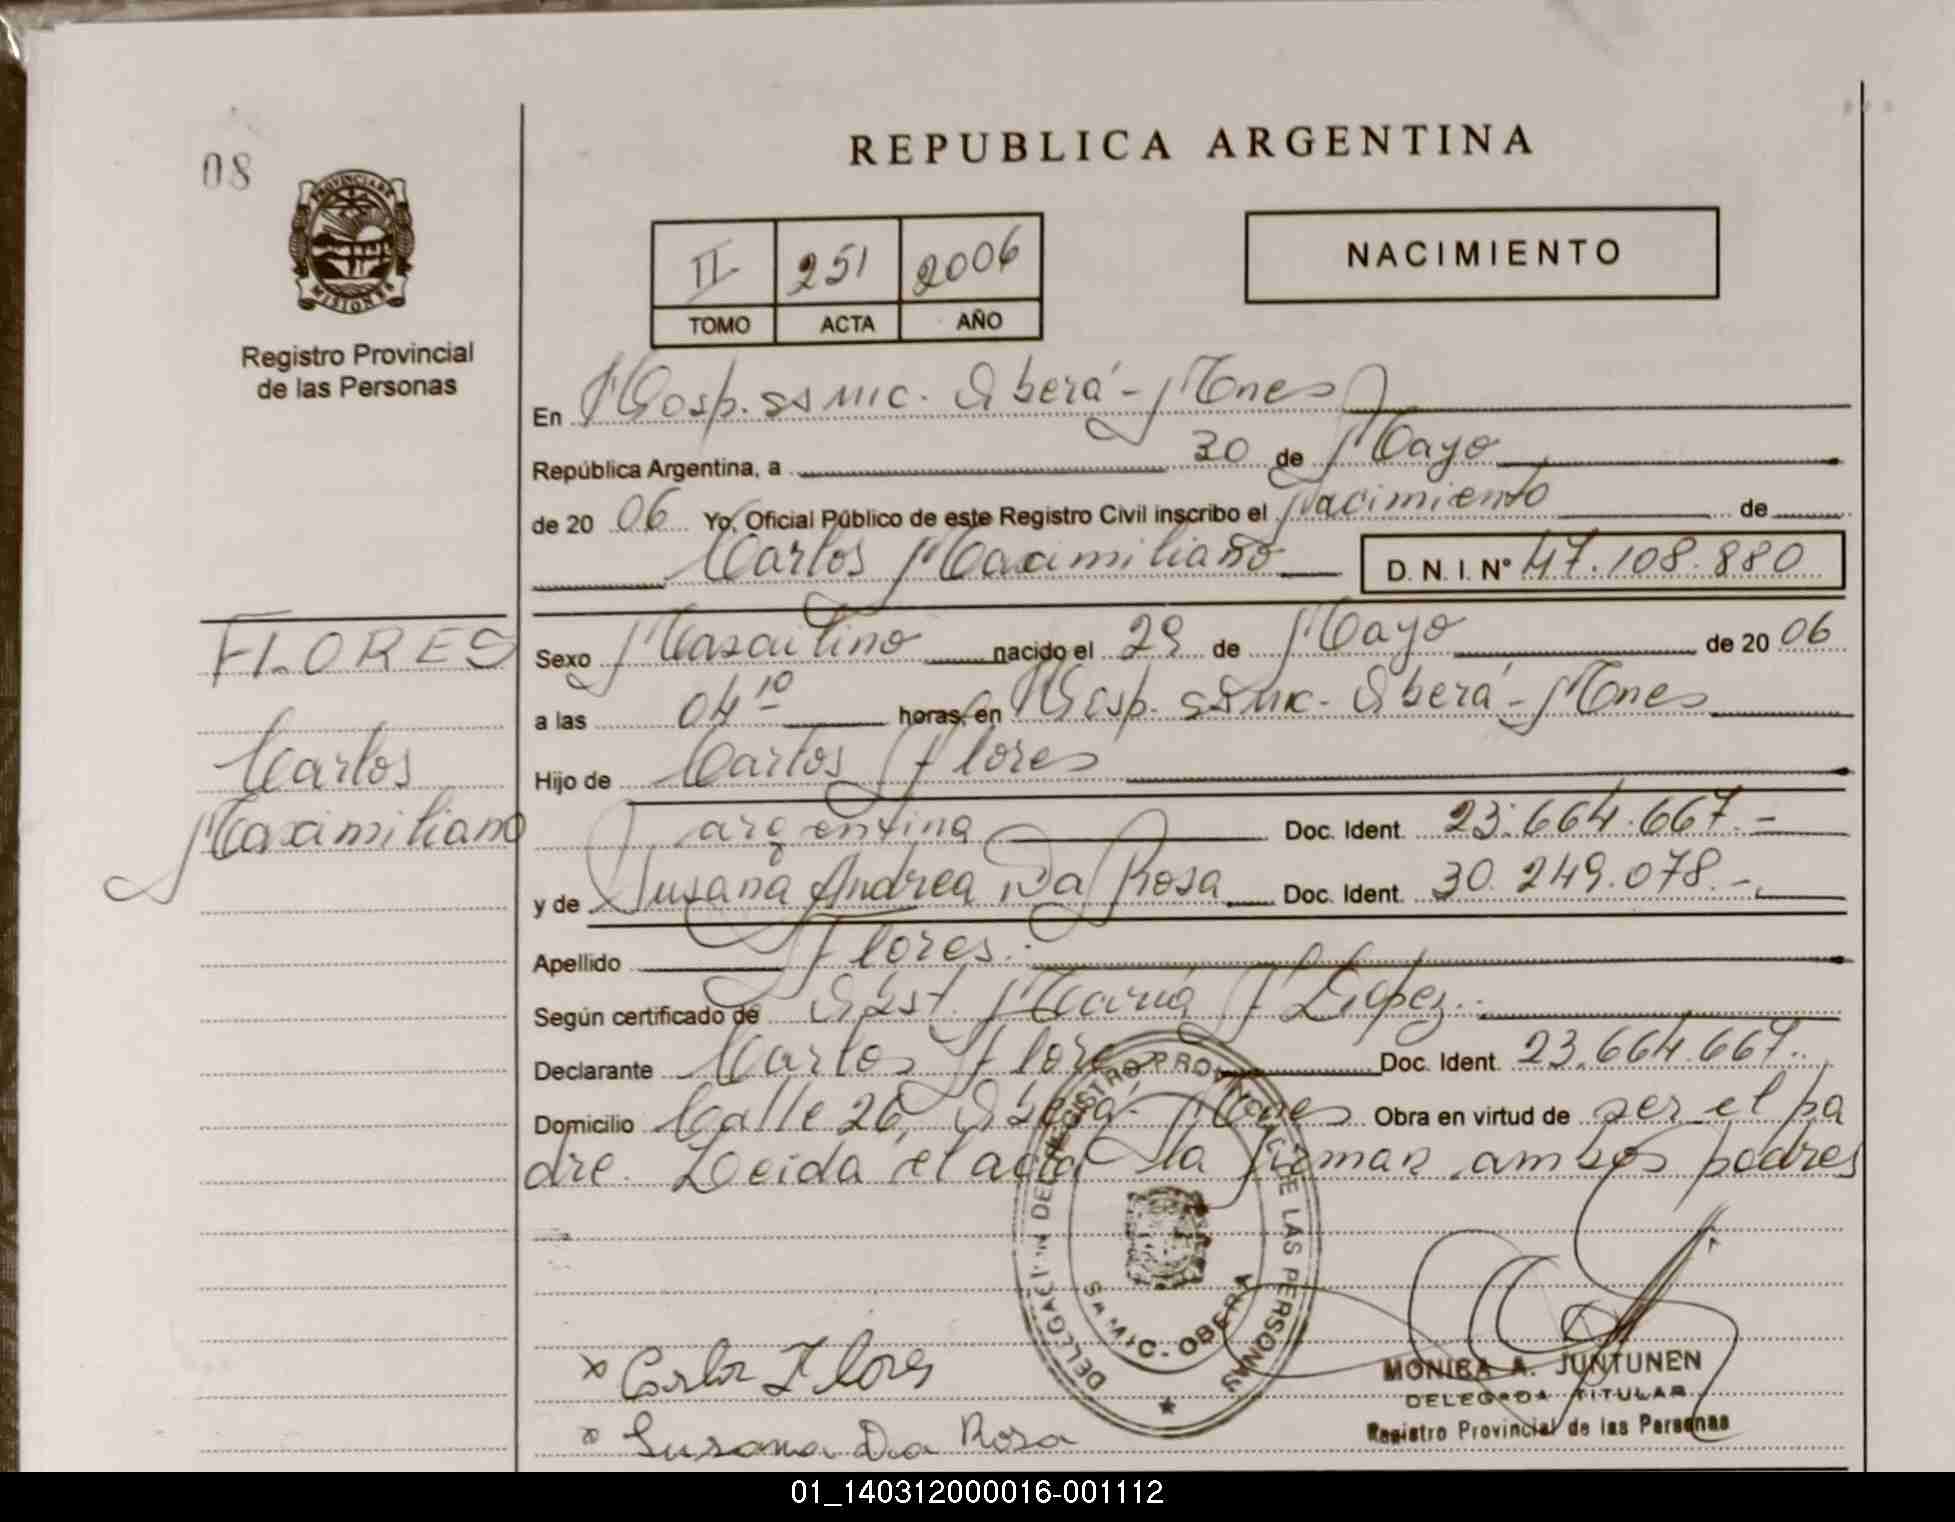 08
PROVINCIA DE
MISIONES
Registro Provincial
de las Personas
REPUBLICA ARGENTINA
II 251 2006
TOMO ACTA AÑO
NACIMIENTO
En Hosp. SSMIC. Oberá - Mnes
República Argentina, a 30 de Mayo
de 20 06 Yo, Oficial Público de este Registro Civil inscribo el Nacimiento de
Carlos Maximiliano D. N. I. N° 47.108.880
FLORES
Carlos
Maximiliano
Sexo Masculino nacido el 29 de Mayo de 20 06
a las 04 10 horas, en Hosp. SSMIC - Oberá - Mnes
Hijo de Carlos Flores
argentina Doc. Ident. 23.664.667.-
y de Susana Andrea Da Rosa Doc. Ident. 30.249.078.-
Apellido Flores.
Según certificado de Obst. María López.
Declarante Carlos Flores Doc. Ident. 23.664.667.
Domicilio Calle 26, Oberá - Mnes Obra en virtud de ser el pa
dre. Leída el acta la firman ambos padres
DELEGACION DEL REGISTRO PROVINCIAL DE LAS PERSONAS
OBERA
x Carlos Flores
Susana Da Rosa
MONICA A. JUNTUNEN
DELEGADA TITULAR
Registro Provincial de las Personas
01_140312000016-001112